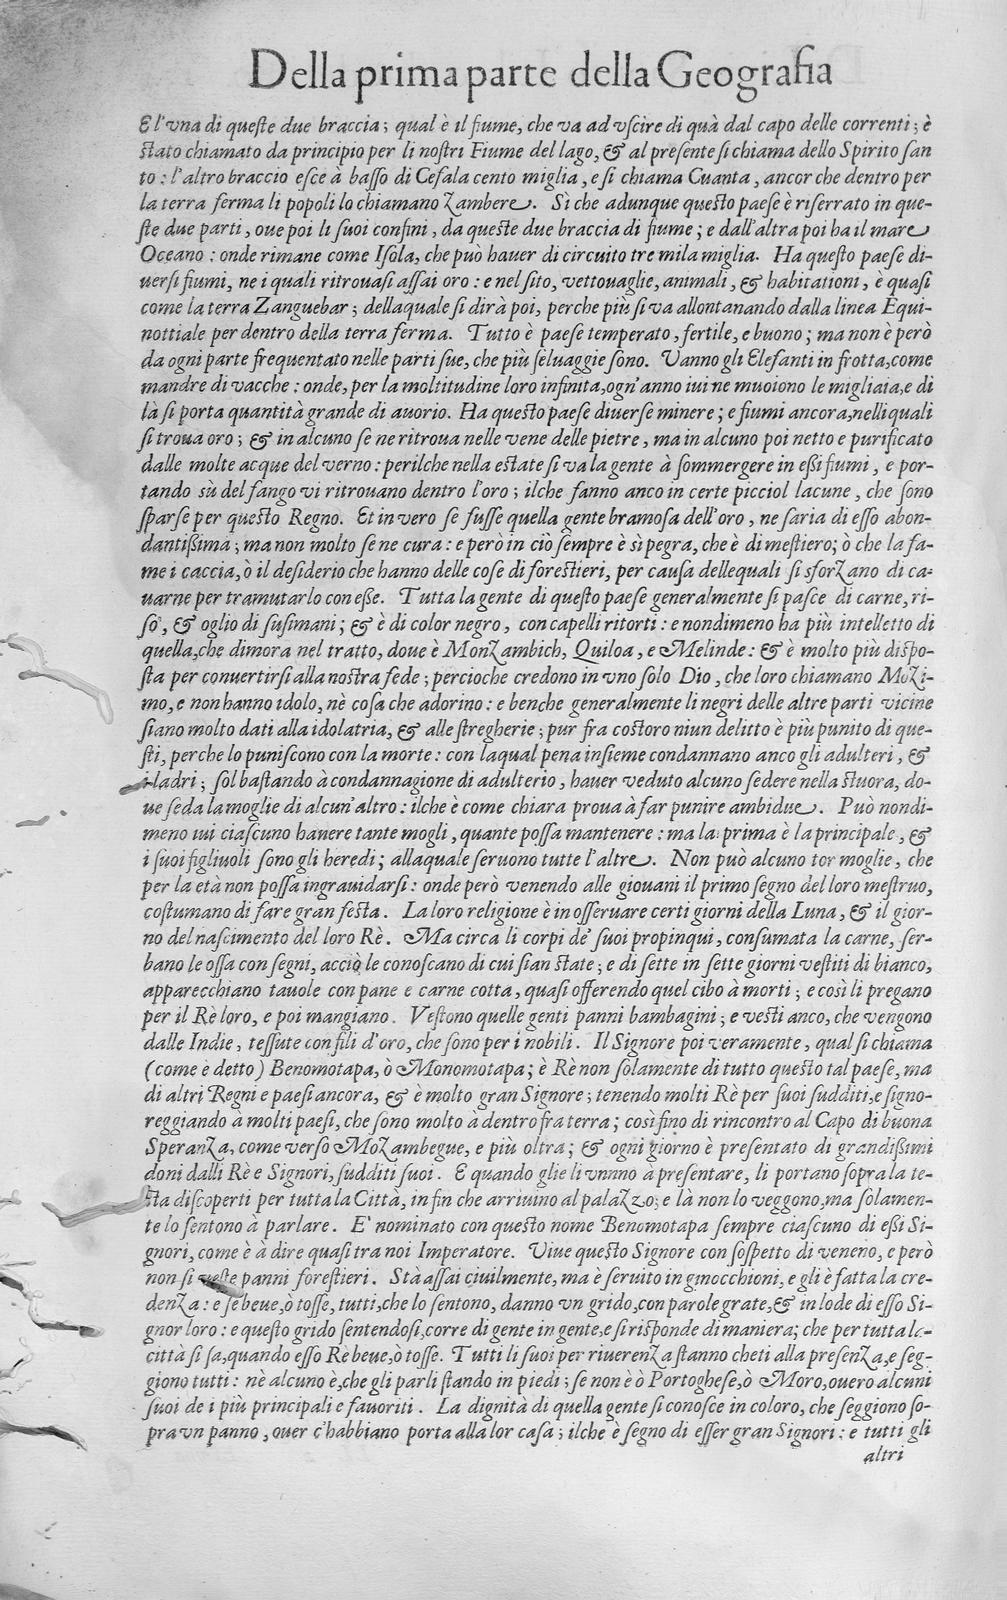 Della prima parte della Geografia
E l'vna di queſte due braccia; qual è il fiume, che va ad vſcire di quà dal capo delle correnti; è
ſtato chiamato da principio per li noſtri Fiume del lago, & al preſente ſi chiama dello Spirito ſan
to: l'altro braccio eſce à baſſo di Cefala cento miglia, e ſi chiama Cuanta, ancor che dentro per
la terra ferma li popoli lo chiamano Zambere. Sì che adunque queſto paeſe è riſerrato in que-
ſte due parti, oue poi li ſuoi confini, da queſte due braccia di fiume; e dall'altra poi ha il mare
Oceano: onde rimane come Iſola, che può hauer di circuito tre mila miglia. Ha queſto paeſe di-
uerſi fiumi, ne i quali ritrouaſi aſſai oro: e nel ſito, vettouaglie, animali, & habitationi, è quaſi
come la terra Zanguebar; dellaquale ſi dirà poi, perche più ſi va allontanando dalla linea Equi-
nottiale per dentro della terra ferma. Tutto è paeſe temperato, fertile, e buono; ma non è però
da ogni parte frequentato nelle parti ſue, che più ſeluaggie ſono. Vanno gli Elefanti in frotta, come
mandre di vacche: onde, per la moltitudine loro infinita, ogn'anno iui ne muoiono le migliaia, e di
là ſi porta quantità grande di auorio. Ha queſto paeſe diuerſe minere; e fiumi ancora, nelli quali
ſi troua oro; & in alcuno ſe ne ritroua nelle vene delle pietre, ma in alcuno poi netto e purificato
dalle molte acque del verno: perilche nella eſtate ſi va la gente à ſommergere in eßi fiumi, e por-
tando sù del fango vi ritrouano dentro l'oro; ilche fanno anco in certe picciol lacune, che ſono
ſparſe per queſto Regno. Et in vero ſe fuſſe quella gente bramoſa dell'oro, ne ſaria di eſſo abon-
dantißima; ma non molto ſe ne cura: e però in ciò ſempre è sì pegra, che è di meſtiero; ò che la fa-
me i caccia, ò il deſiderio che hanno delle coſe di foreſtieri, per cauſa dellequali ſi sforzano di ca-
uarne per tramutarlo con eße. Tutta la gente di queſto paeſe generalmente ſi paſce di carne, ri-
ſo, & oglio di ſuſimani; & è di color negro, con capelli ritorti: e nondimeno ha più intelletto di
quella, che dimora nel tratto, doue è Monzambich, Quiloa, e Melinde: & è molto più diſpo-
ſta per conuertirſi alla noſtra fede; percioche credono in vno ſolo Dio, che loro chiamano Mozi-
mo, e non hanno idolo, nè coſa che adorino: e benche generalmente li negri delle altre parti vicine
ſiano molto dati alla idolatria, & alle ſtregherie; pur fra coſtoro niun delitto è più punito di que-
ſti, perche lo puniſcono con la morte: con laqual pena inſieme condannano anco gli adulteri, &
i ladri; ſol baſtando à condannagione di adulterio, hauer veduto alcuno ſedere nella ſtuora, do-
ue ſeda la moglie di alcun'altro: ilche è come chiara proua à far punire ambidue. Può nondi-
meno iui ciaſcuno hauere tante mogli, quante poſſa mantenere: ma la prima è la principale, &
i ſuoi figliuoli ſono gli heredi; allaquale ſeruono tutte l'altre. Non può alcuno tor moglie, che
per la età non poſſa ingrauidarſi: onde però venendo alle giouani il primo ſegno del loro meſtruo,
coſtumano di fare gran feſta. La loro religione è in oſſeruare certi giorni della Luna, & il gior-
no del naſcimento del loro Rè. Ma circa li corpi de' ſuoi propinqui, conſumata la carne, ſer-
bano le oſſa con ſegni, acciò le conoſcano di cui ſian ſtate; e di ſette in ſette giorni veſtiti di bianco,
apparecchiano tauole con pane e carne cotta, quaſi offerendo quel cibo à morti; e così li pregano
per il Rè loro, e poi mangiano. Veſtono quelle genti panni bambagini; e veſti anco, che vengono
dalle Indie, teſſute con fili d'oro, che ſono per i nobili. Il Signore poi veramente, qual ſi chiama
(come è detto) Benomotapa, ò Monomotapa; è Rè non ſolamente di tutto queſto tal paeſe, ma
di altri Regni e paeſi ancora, & è molto gran Signore; tenendo molti Rè per ſuoi ſudditi, e ſigno-
reggiando à molti paeſi, che ſono molto à dentro fra terra; così fino di rincontro al Capo di buona
Speranza, come verſo Mozambegue, e più oltra; & ogni giorno è preſentato di grandißimi
doni dalli Rè e Signori, ſudditi ſuoi. E quando glie li vnano à preſentare, li portano ſopra la te-
ſta diſcoperti per tutta la Città, in fin che arriuino al palazzo; e là non lo veggono, ma ſolamen-
te lo ſentono à parlare. E' nominato con queſto nome Benomotapa ſempre ciaſcuno di eßi Si-
gnori, come è à dire quaſi tra noi Imperatore. Viue queſto Signore con ſoſpetto di veneno, e però
non ſi veſte panni foreſtieri. Stà aſſai ciuilmente, ma è ſeruito in ginocchioni, e gli è fatta la cre-
denza: e ſe beue, ò toſſe, tutti, che lo ſentono, danno vn grido, con parole grate, & in lode di eſſo Si-
gnor loro: e queſto grido ſentendoſi, corre di gente in gente, e ſi riſponde di maniera; che per tutta la
città ſi ſa, quando eſſo Rè beue, ò toſſe. Tutti li ſuoi per riuerenza ſtanno cheti alla preſenza, e ſeg-
giono tutti: nè alcuno è, che gli parli ſtando in piedi; ſe non è ò Portogheſe, ò Moro, ouero alcuni
ſuoi de i più principali e fauoriti. La dignità di quella gente ſi conoſce in coloro, che ſeggiono ſo-
pra vn panno, ouer c'habbiano porta alla lor caſa; ilche è ſegno di eſſer gran Signori: e tutti gli
altri